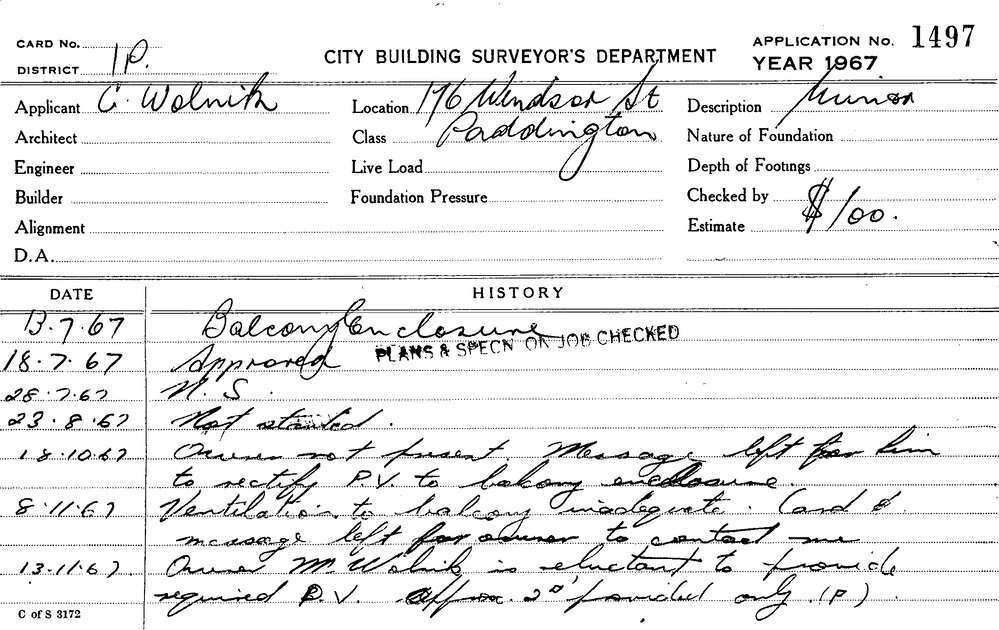 CARD No.
DISTRICT 1P.
CITY BUILDING SURVEYOR'S DEPARTMENT
APPLICATION No. 1497
YEAR 1967
Applicant C. Wolnik Location 176 Windsor St Description Minor
Architect Class Paddington Nature of Foundation
Engineer Live Load Depth of Footings
Builder Foundation Pressure Checked by
Alignment Estimate $100.
D.A.
DATE HISTORY
13.7.67 Balcony Enclosure
PLANS & SPECN ON JOB CHECKED
18.7.67 Approved
28.7.67 N.S.
23.8.67 Not started.
18.10.67 Owner not present. Message left for him
to rectify P.V. to balcony enclosure.
8.11.67 Ventilation to balcony inadequate. Card &
message left for owner to contact me
13.11.67. Owner Mr Wolnik is reluctant to provide
required P.V. Approx. 2" provided only (P).
C of S 3172